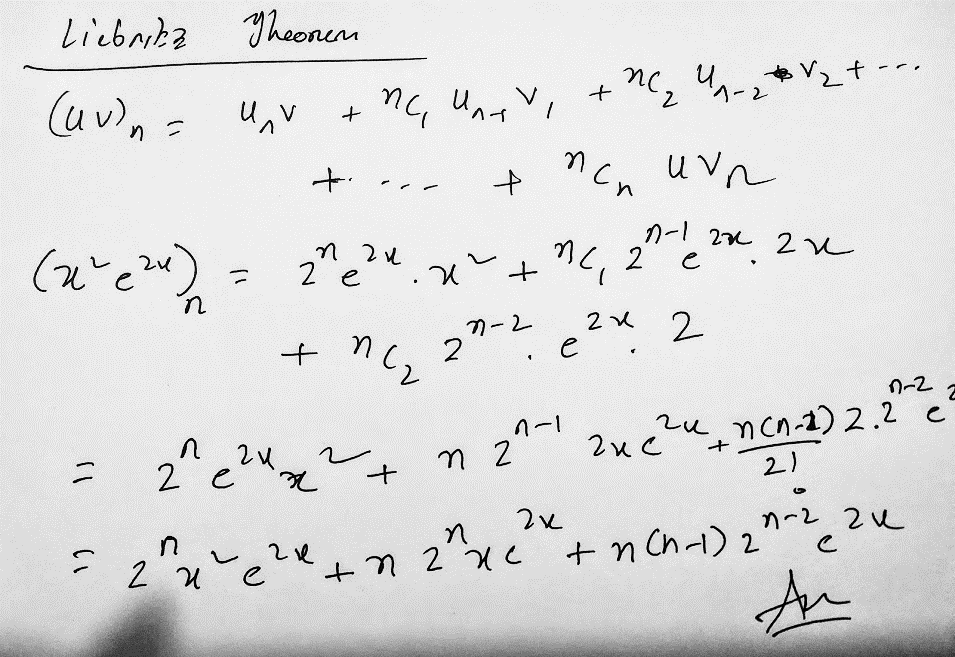 Liebnitz Theorem
(uv)ₙ = uₙv + nC₁ uₙ₋₁ v₁ + nC₂ uₙ₋₂ v₂ + ...
+ ... + nCₙ u vₙ
(x²e²ˣ)ₙ = 2ⁿe²ˣ . x² + nC₁ 2ⁿ⁻¹ e²ˣ . 2x
+ nC₂ 2ⁿ⁻² . e²ˣ . 2
= 2ⁿ e²ˣ x² + n 2ⁿ⁻¹ 2x e²ˣ + n(n-1)/2! 2.2ⁿ⁻² e²
= 2ⁿ x² e²ˣ + n 2ⁿ x e²ˣ + n(n-1) 2ⁿ⁻² e²ˣ
An